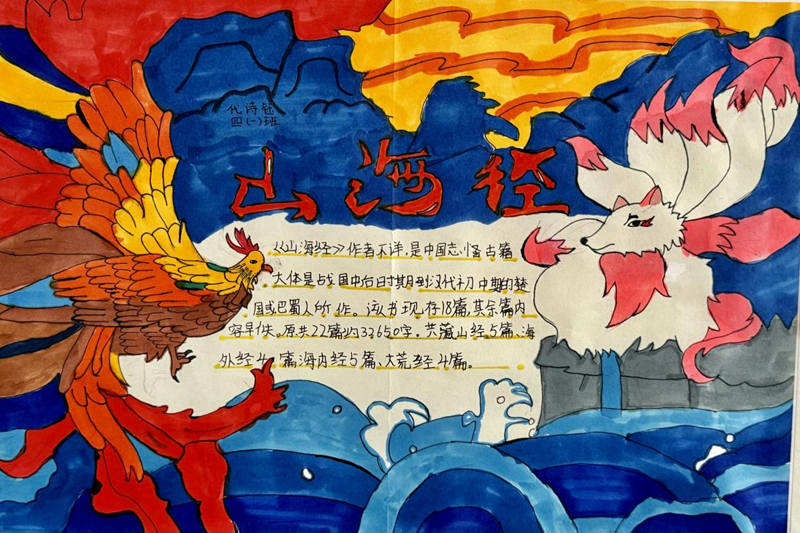 代诗钰
四(一)班
山海经
《山海经》作者不详,是中国志怪古籍
大体是战国中后时期到汉代初中期的楚
国或巴蜀人所作。该书现存18篇,其余篇内
容早佚。原共22篇约32650字。共藏山经5篇、海
外经4篇海内经5篇、大荒经4篇。